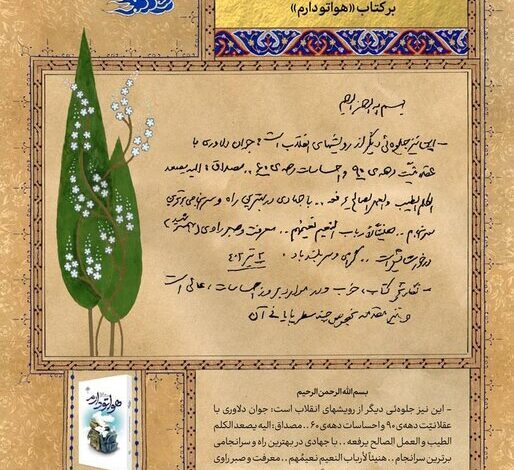 بر کتاب «هواتو دارم»
بسم الله الرحمن الرحیم
- این نیز جلوه‌ئی دیگر از رویشهای انقلاب است: جوان دلاوری با
عقلانیّت دهه‌ی ۹۰ و احساسات دهه‌ی ۶۰.. مصداق: الیه یصعد
الکلم الطیب و العمل الصالح یرفعه.. با جهادی در بهترین راه و سرانجامی برترین
سرانجام.. هنیئاً لأرباب النعیم نعیمُهم.. معرفت و صبر راوی (همسر شهید)
درخور ستایش است.. گرامی و سربلند باد.
- نگارش کتاب، خوب و در مواردی لبریز از احساسات عالی است
و نیز مقدمه بخصوص چند سطر پایانی آن
هواتو دارم
بسم الله الرحمن الرحیم
- این نیز جلوه‌ئی دیگر از رویشهای انقلاب است: جوان دلاوری با
عقلانیّت دهه‌ی ۹۰ و احساسات دهه‌ی ۶۰.. مصداق: الیه یصعد الکلم
الطیب و العمل الصالح یرفعه.. با جهادی در بهترین راه و سرانجامی
برترین سرانجام.. هنیئاً لأرباب النعیم نعیمُهم.. معرفت و صبر راوی